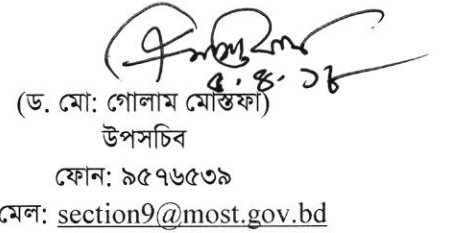 ৫.৪.১৮
(ড. মো: গোলাম মোস্তফা)
উপসচিব
ফোন: ৯৫৭৬৫৩৯
মেল: section9@most.gov.bd